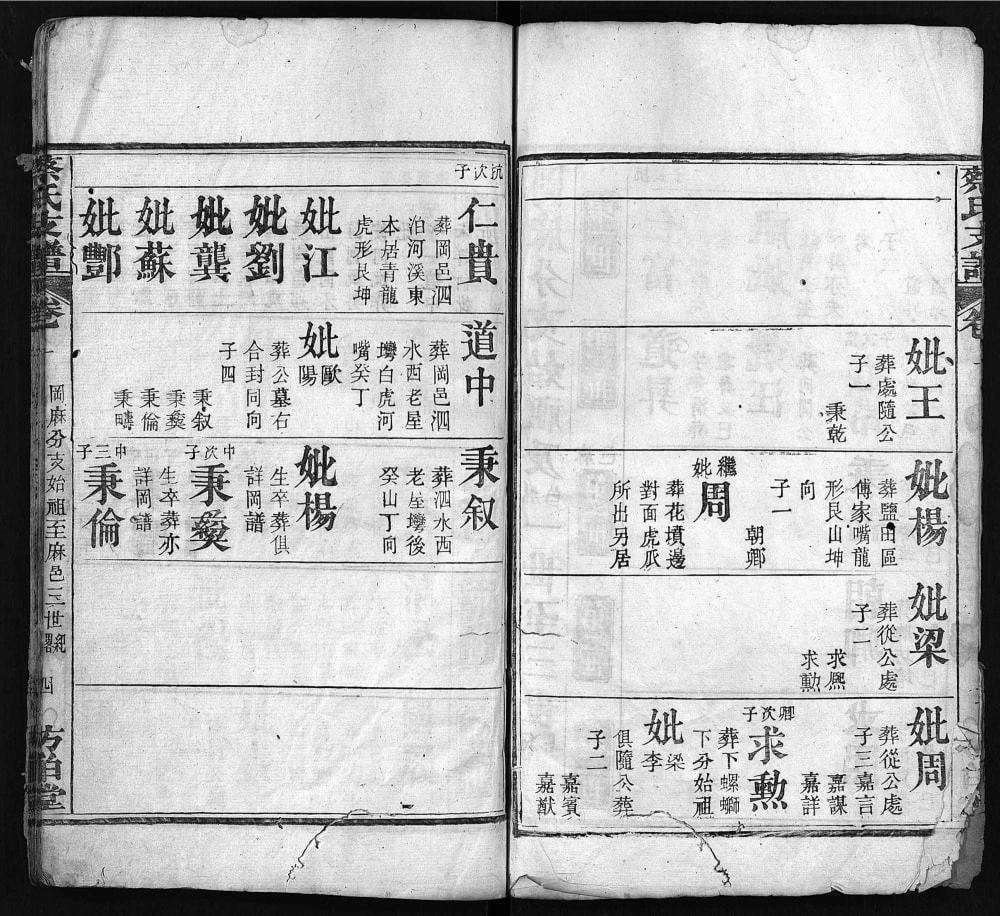 妣王
葬處隨公
子一
秉乾
妣楊
葬鹽田區
傅家嘴龍
形艮山坤
向
子一
朝鄉
繼妣
周
葬花墳邊
對面虎瓜
所出另居
妣梁
葬從公處
子二
求熈
求勲
妣周
葬從公處
子三嘉言
嘉謀
嘉詳
卿次子
求勲
葬下螺螄
下分始祖
妣梁李
俱隨公葬
子二
嘉賓
嘉猷
抗次子
仁貴
葬岡邑泗
泊河溪東
本居青龍
虎形艮坤
妣江
妣劉
妣龔
妣蘇
妣酆
道中
葬岡邑泗
水西老屋
塆白虎河
嘴癸丁
妣歐陽
葬公墓右
合封同向
子四
秉叙
秉燢
秉倫
秉疇
秉叙
葬泗水西
老屋塆後
癸山丁向
妣楊
生卒葬俱
詳岡譜
中次子
秉燢
生卒葬亦
詳岡譜
中三子
秉倫
蔡氏支譜
卷一
岡麻分支始祖至麻邑三世
四
方伯堂